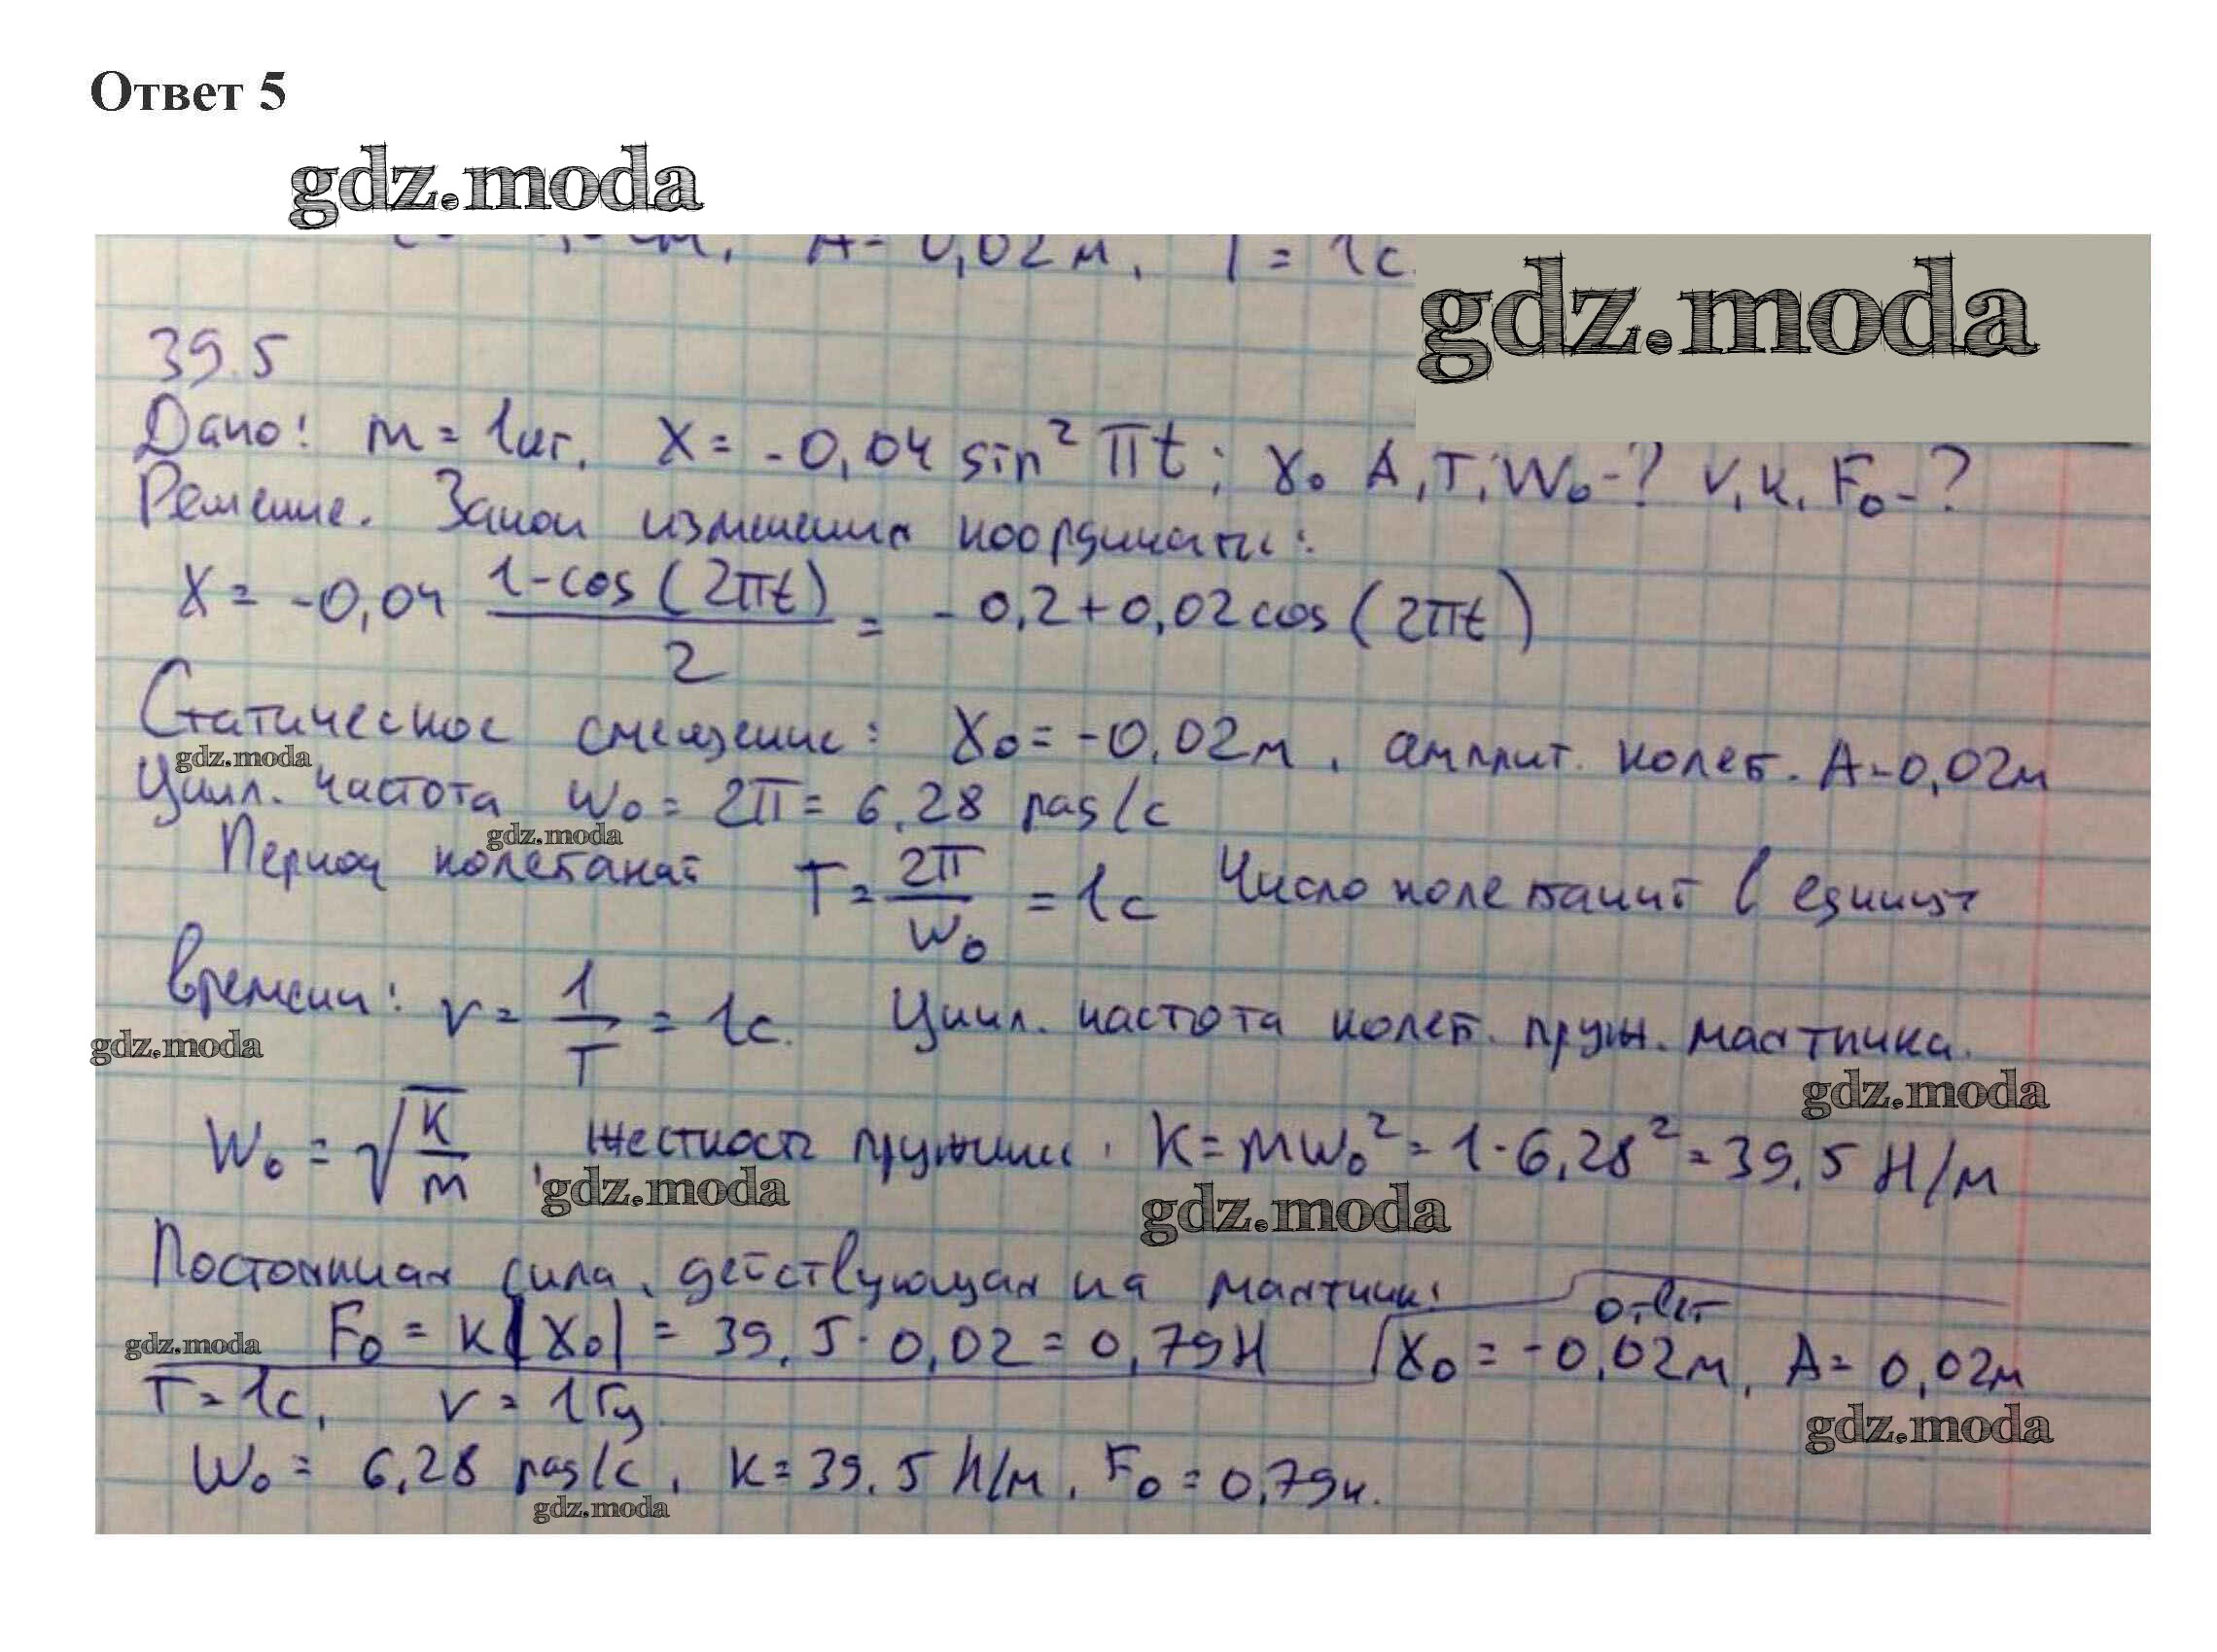 Ответ 5
gdz.moda
А = 0,02 м, T = 1 с.
gdz.moda
39.5
Дано: m = 1 кг, x = -0,04 sin² πt; x₀ A, T, W₀ - ? ν, к, F₀ - ?
Решение. Закон изменения координаты:
x = -0,04 (1-cos(2πt))/2 = -0,2 + 0,02 cos(2πt)
Статическое смещение: x₀ = -0,02 м, амплит. колеб. A = 0,02 м
gdz.moda
Цикл. частота W₀ = 2π = 6,28 рад/с
gdz.moda
Период колебаний T = 2π/W₀ = 1 с Число колебаний в единицу
времени: ν = 1/T = 1 с. Цикл. частота колеб. пруж. маятника.
gdz.moda
gdz.moda
W₀ = √(к/m), жесткость пружины, K = mW₀² = 1·6,28² = 39,5 Н/м
gdz.moda
gdz.moda
Постоянная сила, действующая на маятник:
ответ
F₀ = к|x₀| = 39,5·0,02 = 0,79 Н x₀ = -0,02 м, A = 0,02 м
gdz.moda
T = 1 с, ν = 1 Гц
gdz.moda
W₀ = 6,28 рад/с, K = 39,5 Н/м, F₀ = 0,79 н.
gdz.moda